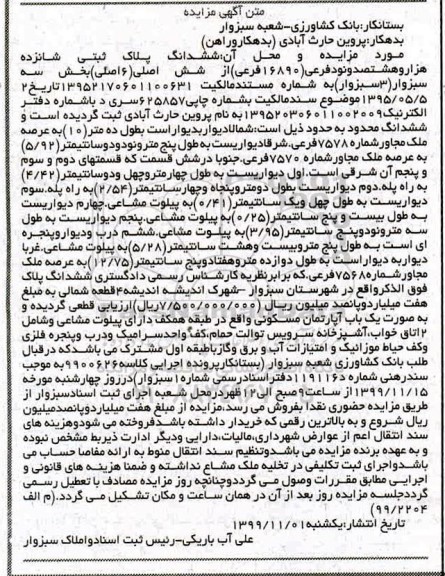 متن آگهی مزایده
بستانکار:بانک کشاورزی-شعبه سبزوار
بدهکار:پروین حارث آبادی (بدهکاروراهن)
مورد مزایده و محل آن:ششدانگ پلاک ثبتی شانزده
هزاروهشتصدونودفرعی(۱۶۸۹۰فرعی)از شش اصلی(۶اصلی)بخش سه
سبزوار(۳سبزوار)به شماره مستندمالکیت ۱۳۹۵۲۱۷۰۶۰۱۱۰۰۶۳۱ تاریخ۲
۱۳۹۵/۰۵/۵موضوع سندمالکیت بشماره چاپی۶۲۵۸۵۷سری د باشماره دفتر
الکترنیک۱۳۹۵۲۰۳۰۶۰۱۱۰۰۲۰۰۹به نام پروین حارث آبادی ثبت گردیده است و
ششدانگ محدود به حدود ذیل است:شمالادیواربدیواراست بطول ده متر(۱۰)به عرصه
ملک مجاورشماره۷۵۷۸فرعی.شرقادیواریست به طول پنج مترونودودوسانتیمتر(۵/۹۲)
به عرصه ملک مجاورشماره ۷۵۷۰فرعی.جنوبا درشش قسمت که قسمتهای دوم و سوم
و پنجم آن شرقی است.اول دیواریست به طول چهارمتروچهل ودوسانتیمتر(۴/۴۲)
به راه پله.دوم دیواریست بطول دومتروپنجاه وچهارسانتیمتر(۲/۵۴)به راه پله.سوم
دیواریست به طول چهل ویک سانتیمتر(۰/۴۱)به پیلوت مشاعی.چهارم دیواریست
به طول بیست و پنج سانتیمتر(۰/۲۵)به پیلوت مشاعی.پنجم دیواریست به طول
سه مترونودوپنج سانتیمتر(۳/۹۵)به پیلوت مشاعی.ششم درب ودیواروپنجره
ای است به طول پنج متروبیست وهشت سانتیمتر(۵/۲۸)به پیلوت مشاعی.غربا
دیوار به دیوار است به طول دوازده متروهفتادوپنج سانتیمتر(۱۲/۷۵)به عرصه ملک
مجاورشماره۷۵۶۸فرعی.که برابرنظریه کارشناس رسمی دادگستری ششدانگ پلاک
فوق الذکرواقع در شهرستان سبزوار –شهرک اندیشه اندیشه۴قطعه شمالی به مبلغ
هفت میلیاردوپانصد میلیون ریال (۷/۵۰۰/۰۰۰/۰۰۰ریال)ارزیابی قطعی گردیده و
به صورت یک باب آپارتمان مسکونی واقع در طبقه همکف دارای پیلوت مشاعی وشامل
۲اتاق خواب،آشپزخانه سرویس توالت حمام،کف واحدسرامیک ودرب وپنجره فلزی
وکف حیاط موزائیک و امتیازات آب و برق وگازباطبقه اول مشترک می باشدکه درقبال
طلب بانک کشاورزی شعبه سبزوار (بستانکارپرونده اجرایی کلاسه۹۹۰۰۶۲۶به موجب
سندرهنی شماره ۱۱۹۱۱۶دفتراسنادرسمی شماره۱سبزوار)درروز چهارشنبه مورخه
۱۳۹۹/۱۱/۱۵از ساعت۹صبح الی۱۲ظهردرمحل شعبه اجرای ثبت اسنادسبزوار از
طریق مزایده حضوری نقدا بفروش می رسد.مزایده از مبلغ هفت میلیاردوپانصدمیلیون
ریال شروع و به بالاترین رقمی که خریدار داشته باشدفروخته می شودوهزینه های
سند انتقال اعم از عوارض شهرداری،مالیات،دارایی ودیگر ادارت ذیربط مشخص نبوده
و به عهده برنده مزایده می باشدوتنظیم سند انتقال منوط به ارائه مفاصا حساب می
باشدواجرای ثبت تکلیفی در تخلیه ملک مشاع نداشته و ضمنا هزینه های قانونی و
اجرایی مطابق مقررات وصول می گرددوچنانچه روز مزایده مصادف با تعطیل رسمی
گرددجلسه مزایده روز بعد از آن در همان ساعت و مکان تشکیل می گردد.(م الف
۹۹/۲۲۰۴)
تاریخ انتشار:یکشنبه۱۳۹۹/۱۱/۰۱
علی آب باریکی-رئیس ثبت اسنادواملاک سبزوار